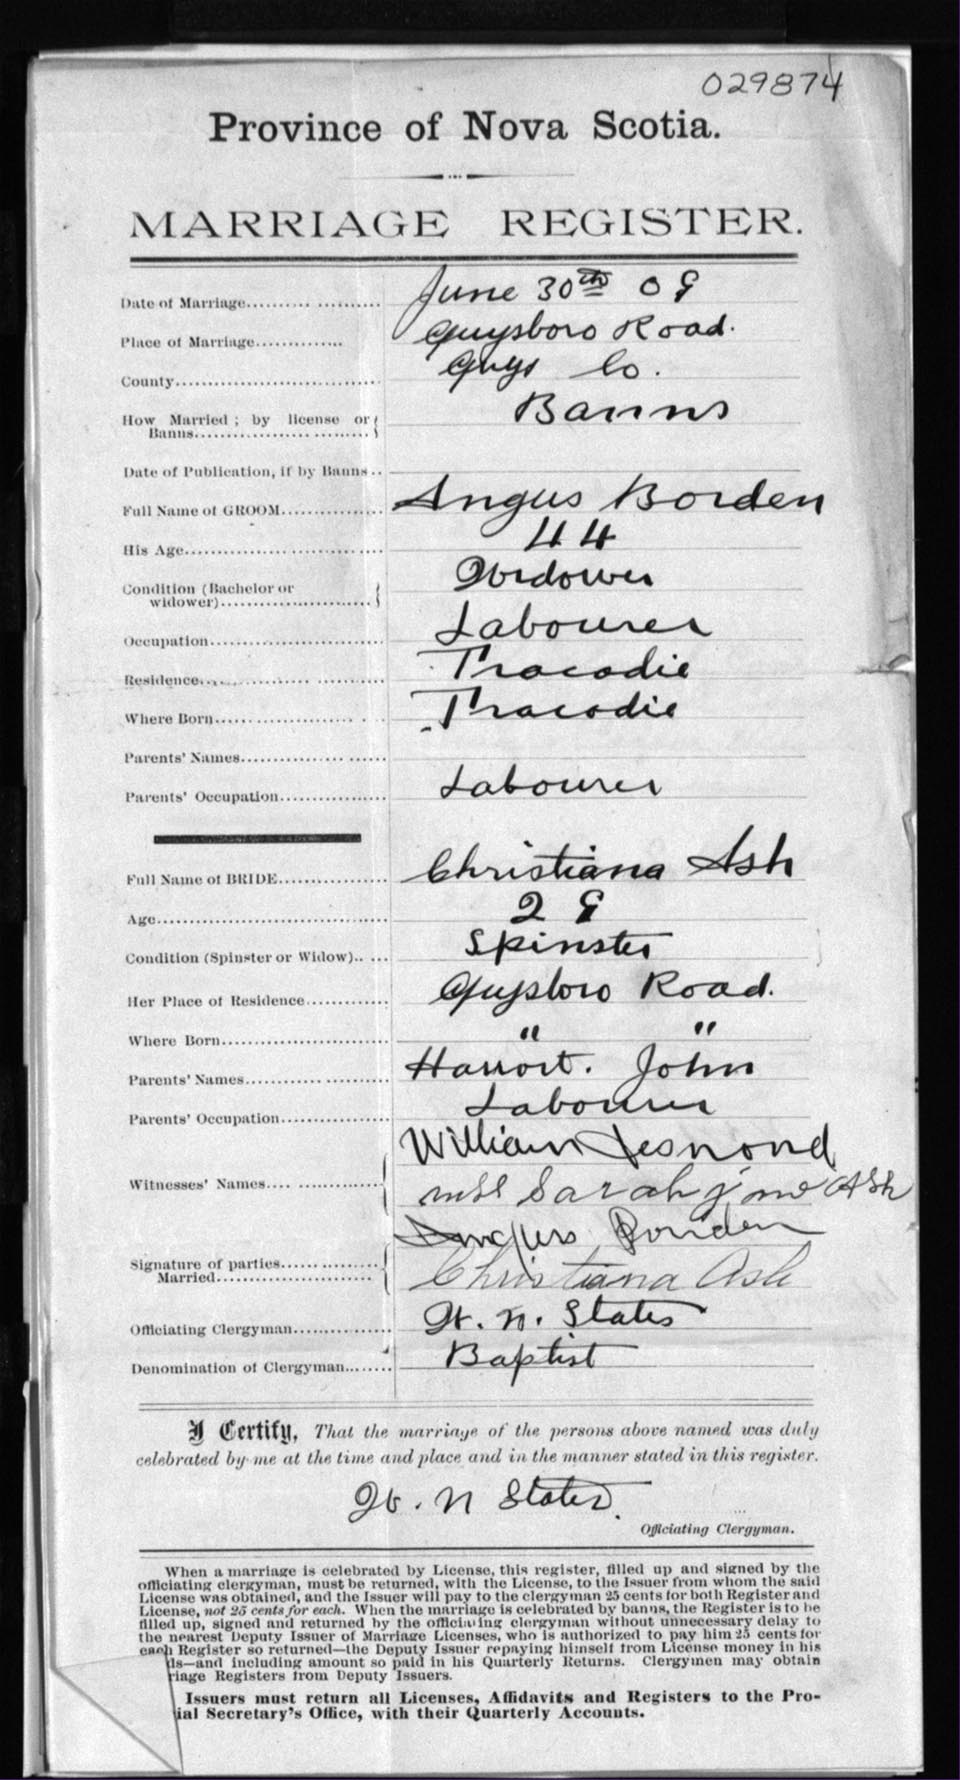 029874
Province of Nova Scotia.
MARRIAGE REGISTER.
Date of Marriage.................. June 30th 09
Place of Marriage............. Guysboro Road.
County............................... Guys Co.
How Married ; by license or
Banns........................... Banns
Date of Publication, if by Banns..
Full Name of GROOM............... Angus Borden
His Age.............................. 44
Condition (Bachelor or
widower)....................... Widower
Occupation.......................... Labourer
Residence........................... Tracadie
Where Born.................. . . Tracadie
Parents' Names......................
Parents' Occupation................ Labourer
Full Name of BRIDE................ Christiana Ash
Age................................... 29
Condition (Spinster or Widow).. ... Spinster
Her Place of Residence............ Guysboro Road.
Where Born......................... " "
Parents' Names...................... John
Parents' Occupation............... Labourer
William Desmond
Witnesses' Names.... ............... Sarah Ash
Borden
Signature of parties................
Married....................... Christiana Ash
Officiating Clergyman............... W. N. States
Denomination of Clergyman....... Baptist
I Certify, That the marriage of the persons above named was duly
celebrated by me at the time and place and in the manner stated in this register.
W. N States.
Officiating Clergyman.
When a marriage is celebrated by License, this register, filled up and signed by the
officiating clergyman, must be returned, with the License, to the Issuer from whom the said
License was obtained, and the Issuer will pay to the clergyman 25 cents for both Register and
License, not 25 cents for each. When the marriage is celebrated by banns, the Register is to be
filled up, signed and returned by the officiating clergyman without unnecessary delay to
the nearest Deputy Issuer of Marriage Licenses, who is authorized to pay him 25 cents for
each Register so returned—the Deputy Issuer repaying himself from License money in his
ds—and including amount so paid in his Quarterly Returns. Clergymen may obtain
riage Registers from Deputy Issuers.
Issuers must return all Licenses, Affidavits and Registers to the Pro-
ial Secretary's Office, with their Quarterly Accounts.